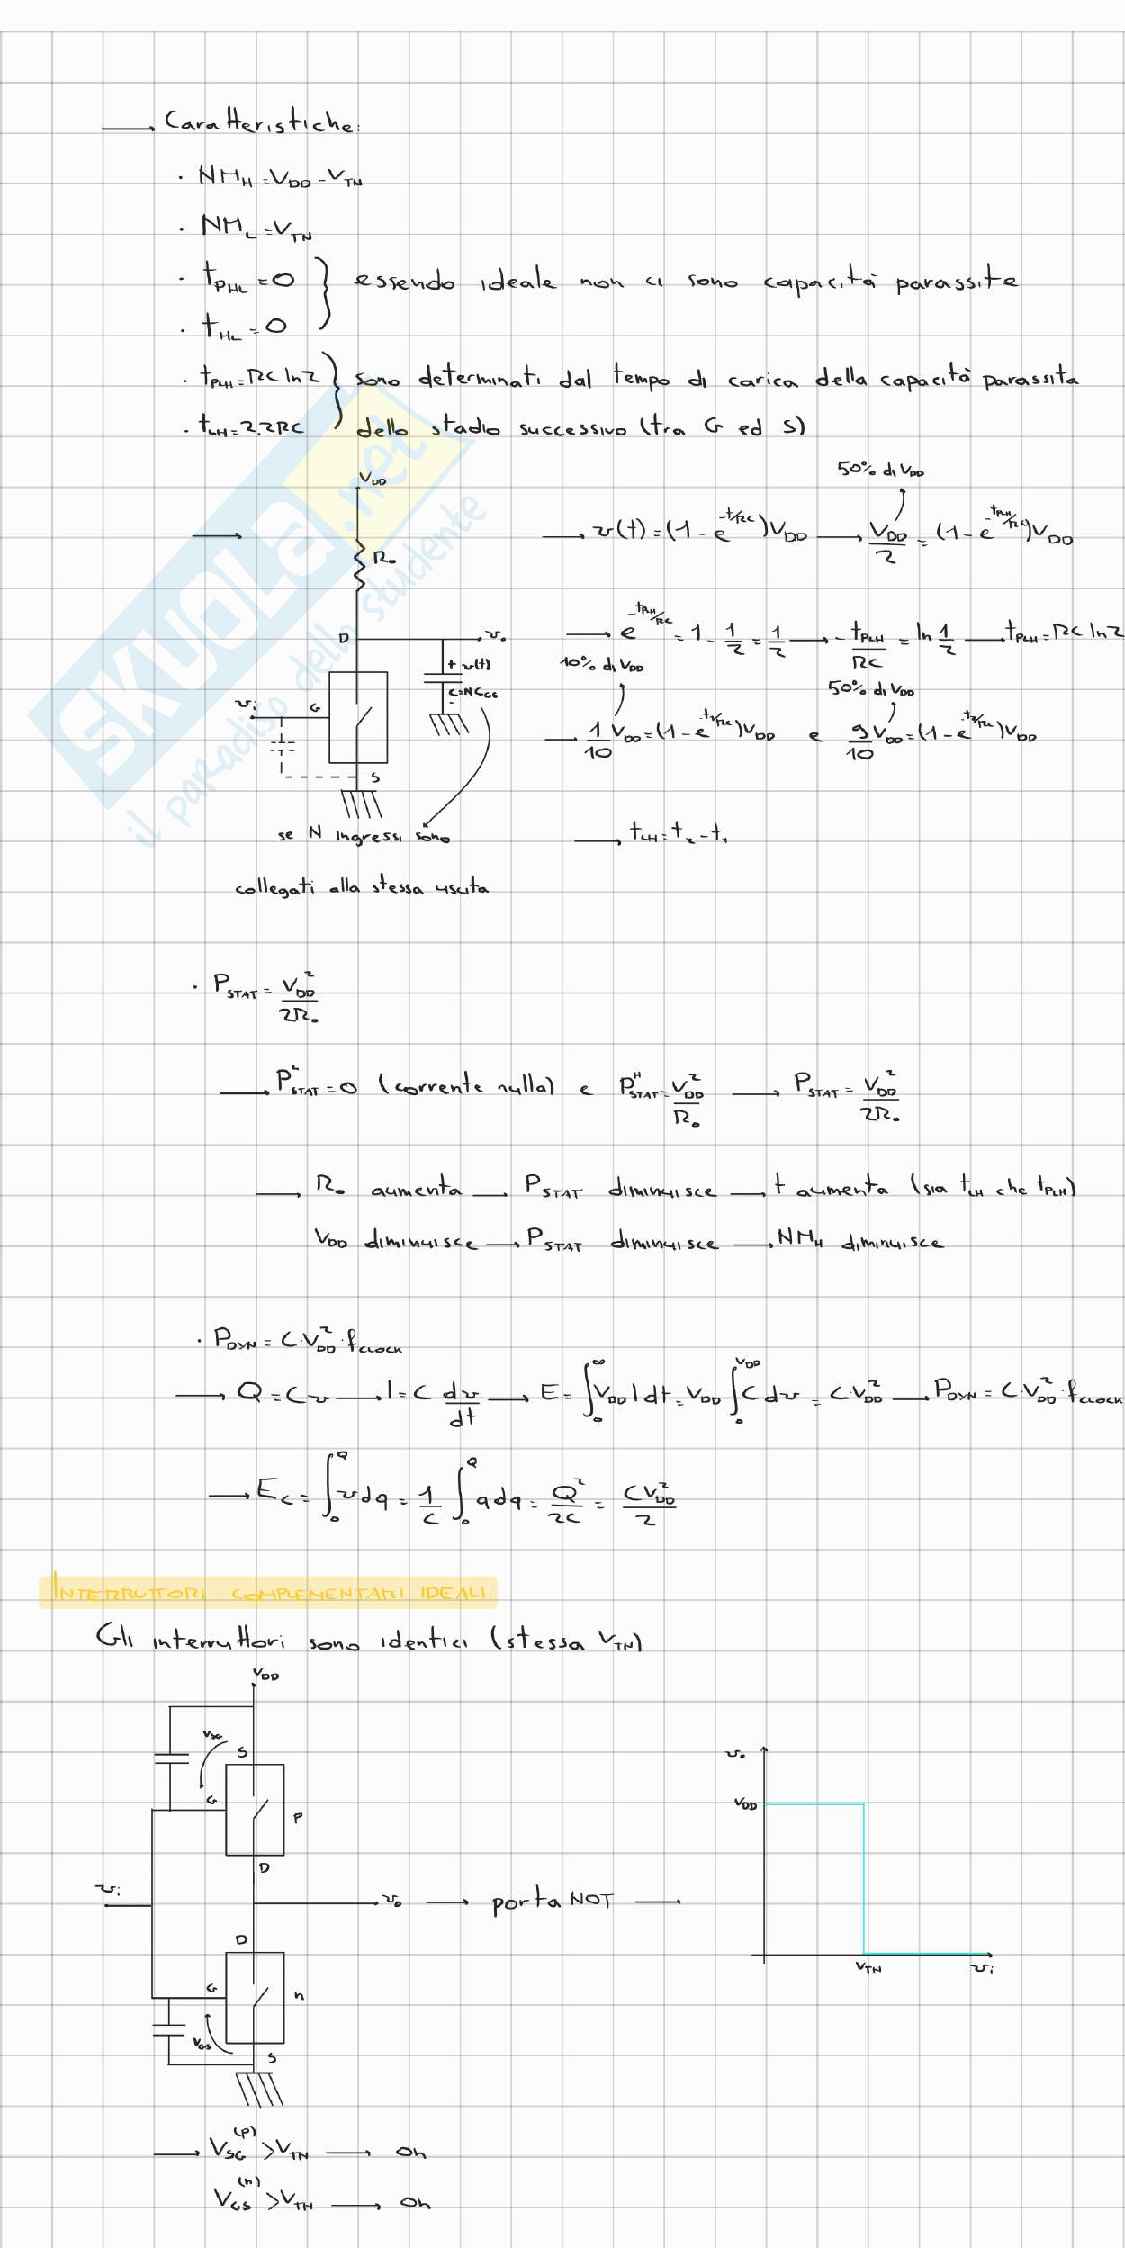 → Caratteristiche:
· NM_H = V_DD - V_TN
· NM_L = V_TN
· t_PHL = 0 } essendo ideale non ci sono capacità parassite
· t_HL = 0
· t_PLH = RC ln2 } sono determinati dal tempo di carica della capacità parassita
· t_LH = 2.2RC dello stadio successivo (tra G ed S)
SKUOLA.net
il paradiso dello studente
50% di V_DD
V_DD
→ → v(t) = (1 - e^{-t/RC})V_DD → V_DD/2 = (1 - e^{-t_PLH/RC})V_DD
R_o
D v_o → e^{-t_PLH/RC} = 1 - 1/2 = 1/2 → -t_PLH/RC = ln 1/2 → t_PLH = RC ln2
+ v(t) - C=NC_GS
10% di V_DD 50% di V_DD
v_i G → 1/10 V_DD = (1 - e^{-t_1/RC})V_DD e 9/10 V_DD = (1 - e^{-t_2/RC})V_DD
S
se N ingressi sono → t_LH = t_2 - t_1
collegati alla stessa uscita
· P_STAT = V_DD²/2R_o
→ P^L_STAT = 0 (corrente nulla) e P^H_STAT = V_DD²/R_o → P_STAT = V_DD²/2R_o
→ R_o aumenta → P_STAT diminuisce → t aumenta (sia t_LH che t_PLH)
V_DD diminuisce → P_STAT diminuisce → NM_H diminuisce
· P_DYN = C·V_DD²·f_CLOCK
→ Q = Cv → I = C dv/dt → E = ∫_0^∞ V_DD I dt = V_DD ∫_0^{V_DD} C dv = C V_DD² → P_DYN = C·V_DD²·f_CLOCK
→ E_C = ∫_0^Q v dq = 1/C ∫_0^Q q dq = Q²/2C = CV_DD²/2
INTERRUTTORI COMPLEMENTARI IDEALI
Gli interruttori sono identici (stessa V_TN)
V_DD
V_SG S
G P
D
v_i v_o → porta NOT →
D
G n
V_GS S
v_o
V_DD
V_TN v_i
→ V_SG^(p) > V_TN → on
V_GS^(n) > V_TN → on